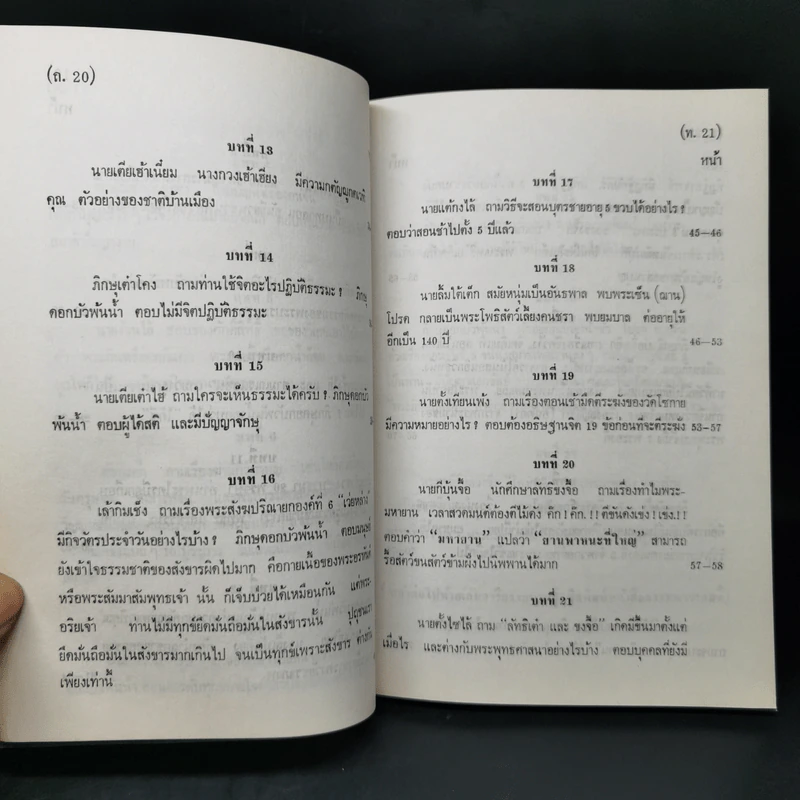 (ถ. 20)
บทที่ 13
นายเตียเฮ้าเนี้ยม นางกวงเฮ้าเฮียง มีความกตัญญูกตเวที
คุณ ตัวอย่างของชาติบ้านเมือง
บทที่ 14
ภิกษุเต๋าโคง ถามท่านใช้จิตอะไรปฏิบัติธรรมะ ? ภิกษุ
ดอกบัวพ้นน้ำ ตอบไม่มีจิตปฏิบัติธรรมะ
บทที่ 15
นายเตียเต๋าไฮ้ ถามใครจะเห็นธรรมะได้ครับ ? ภิกษุดอกบัว
พ้นน้ำ ตอบผู้ได้สติ และมีปัญญาจักษุ
บทที่ 16
เล้ากิมเซ็ง ถามเรื่องพระสังฆปริณายกองค์ที่ 6 "เว่ยหล่าง"
มีกิจวัตรประจำวันอย่างไรบ้าง ? ภิกษุดอกบัวพ้นน้ำ ตอบมนุษย์
ยังเข้าใจธรรมชาติของสังขารผิดไปมาก คือกายเนื้อของพระอรหันต์
หรือพระสัมมาสัมพุทธเจ้า นั้น ก็เจ็บป่วยได้เหมือนกัน แต่พระ
อริยเจ้า ท่านไม่มีทุกข์ยึดมั่นถือมั่นในสังขารนั้น ปุถุชนเรา
ยึดมั่นถือมั่นในสังขารมากเกินไป จนเป็นทุกข์เพราะสังขาร ต่างกัน
เพียงเท่านี้
(ท. 21)
หน้า
บทที่ 17
นายแต้กงไล้ ถามวิธีจะสอนบุตรชายอายุ 5 ขวบได้อย่างไร ?
ตอบว่าสอนช้าไปตั้ง 5 ปีแล้ว 45—46
บทที่ 18
นายลิ้มไต้เต็ก สมัยหนุ่มเป็นอันธพาล พบพระเซ็น (ฌาน)
โปรด กลายเป็นพระโพธิสัตว์เลี้ยงคนชรา พบยมบาล ต่ออายุให้
อีกเป็น 140 ปี 46—53
บทที่ 19
นายตั้งเทียนเพ้ง ถามเรื่องตอนเช้ามืดตีระฆังของวัดโซกาย
มีความหมายอย่างไร ? ตอบต้องอธิษฐานจิต 19 ข้อก่อนที่จะตีระฆัง 53—57
บทที่ 20
นายกีบุ้นจื้อ นักศึกษาลัทธิขงจื้อ ถามเรื่องทำไมพระ-
มหายาน เวลาสวดมนต์ต้องตีไม้ดัง ต๊ก ! ต๊ก. !! ตีขันดังเช่ง ! เช่ง.!!
ตอบคำว่า "มหายาน" แปลว่า "ยานพาหนะที่ใหญ่" สามารถ
รื้อสัตว์ขนสัตว์ข้ามฝั่งไปนิพพานได้มาก 57—58
บทที่ 21
นายตั้งไซไล้ ถาม "ลัทธิเต๋า และ ขงจื้อ" เกิดมีขึ้นมาตั้งแต่
เมื่อไร และต่างกับพระพุทธศาสนาอย่างไรบ้าง ตอบบุคคลที่ยังมี